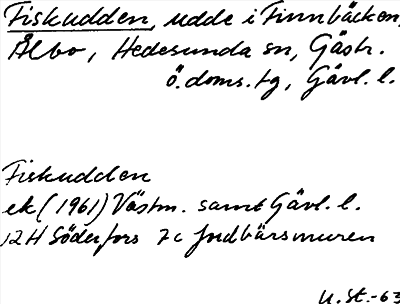 Fiskudden, udde i Finnbäcken,
Ålbo, Hedesunda sn, Gästr.
ö. doms. tg, Gävl. l.
Fiskudden
ek (1961) Västm. samt Gävl. l.
12H Söderfors 7c Jordbärsmuren
U. St. -63